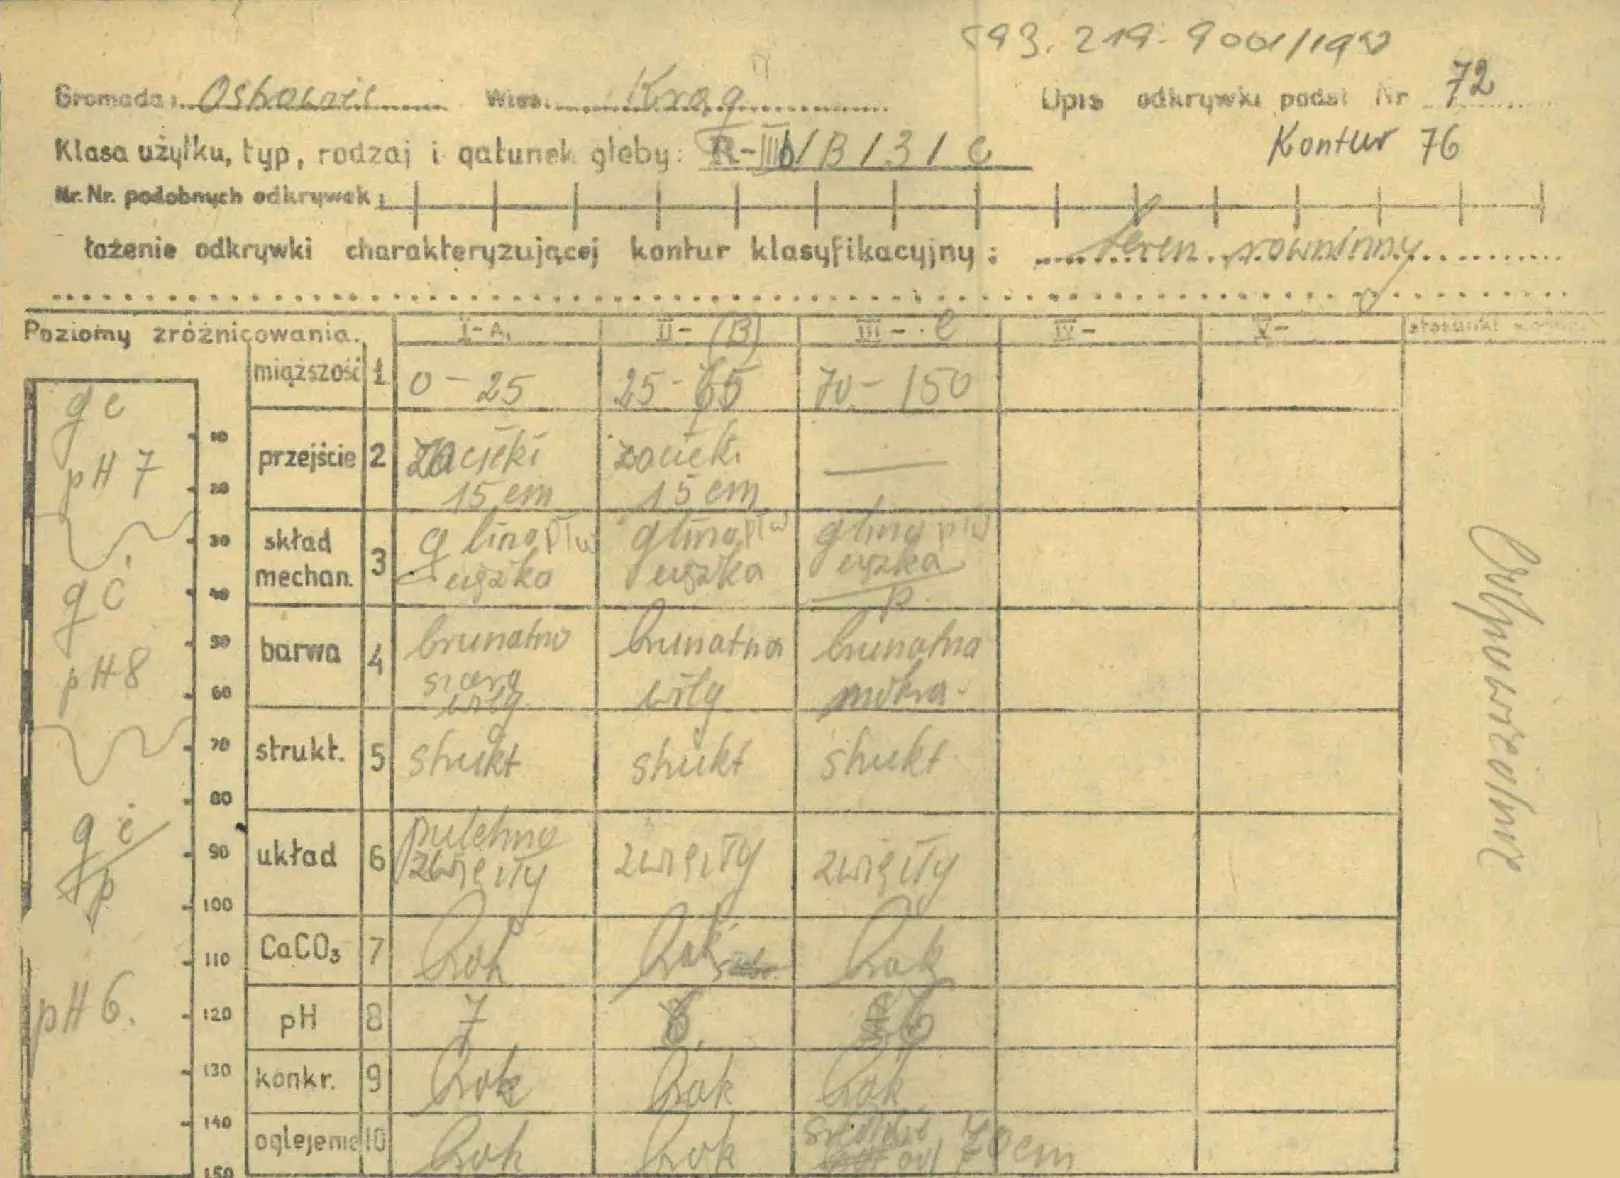 Gromada: Wieś: Krąg Opis odkrywki podst Nr 72
Klasa użytku, typ, rodzaj i gatunek gleby: R-IIIb/B/3/c Kontur 76
Nr. Nr. podobnych odkrywek:
łożenie odkrywki charakteryzującej kontur klasyfikacyjny: teren równinny
Poziomy zróżnicowania. I-A. II-(B) III-C IV- V- stosunki
miąższość 1 0-25 25-65 70-150
przejście 2 zacieki 15 cm zacieki 15 cm —
skład mechan. 3 glina płw ciężka glina płw ciężka glina płw ciężka p
barwa 4 brunatno szara wilg brunatna wilg brunatna mokra
strukt. 5 strukt strukt strukt
układ 6 pulchno zwięzły zwięzły zwięzły
CaCO₃ 7 brak brak brak
pH 8 7 8 6
konkr. 9 brak brak brak
oglejenie 10 brak brak od 70 cm
gc
pH 7
gc
pH 8
gc
p
pH 6.
10
20
30
40
50
60
70
80
90
100
110
120
130
140
150